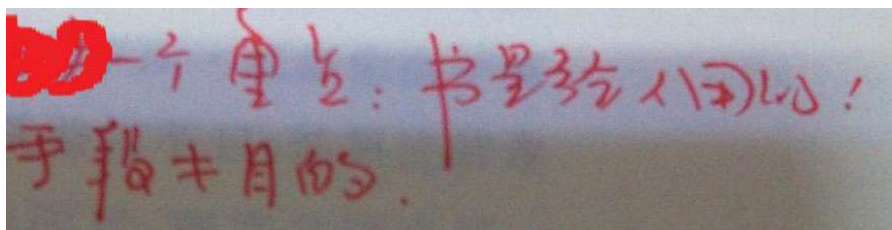 一个重点：书是给人用的！
手段≠目的.